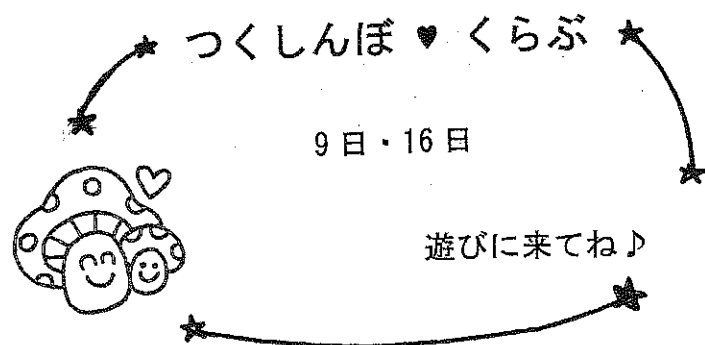 つくしんぼ♥くらぶ
9日・16日
遊びに来てね♪